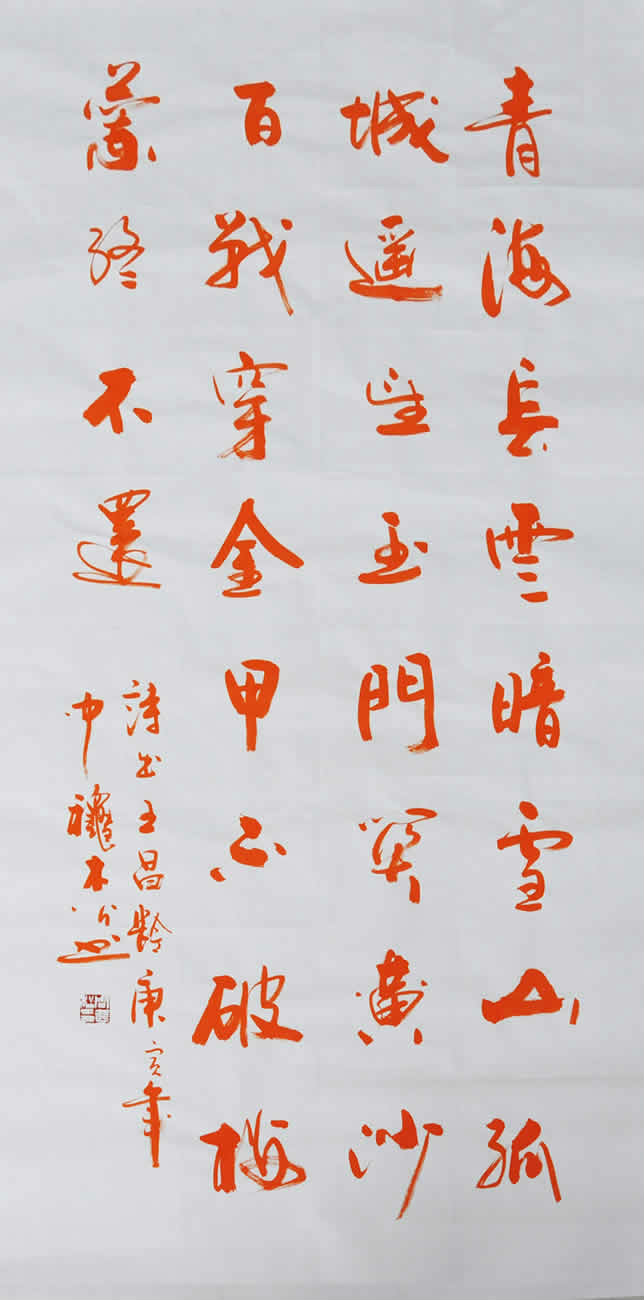 青海長雲暗雪山孤
城遥望玉門關黄沙
百戰穿金甲不破樓
蘭終不還
詩出王昌齡庚寅年
中龝